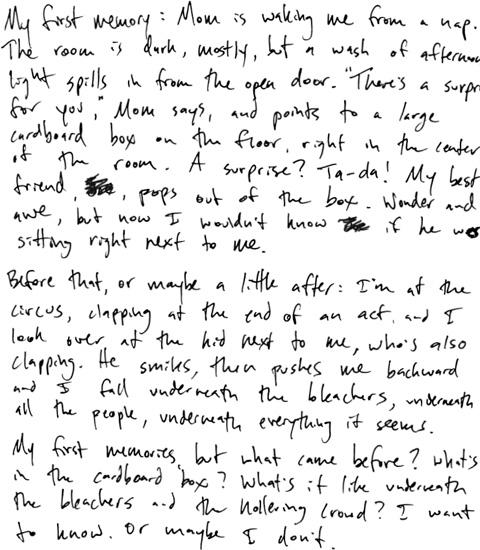 My first memory: Mom is waking me from a nap.
The room is dark, mostly, but a wash of afternoon
light spills in from the open door. "There's a surpri
for you," Mom says, and points to a large
cardboard box on the floor, right in the center
of the room. A surprise? Ta-da! My best
friend, , pops out of the box. Wonder and
awe, but now I wouldn't know if he was
sitting right next to me.
Before that, or maybe a little after: I'm at the
circus, clapping at the end of an act, and I
look over at the kid next to me, who's also
clapping. He smiles, then pushes me backward
and I fall underneath the bleachers, underneath
all the people, underneath everything it seems.
My first memories, but what came before? What's
in the cardboard box? What's it like underneath
the bleachers and the hollering crowd? I want
to know. Or maybe I don't.